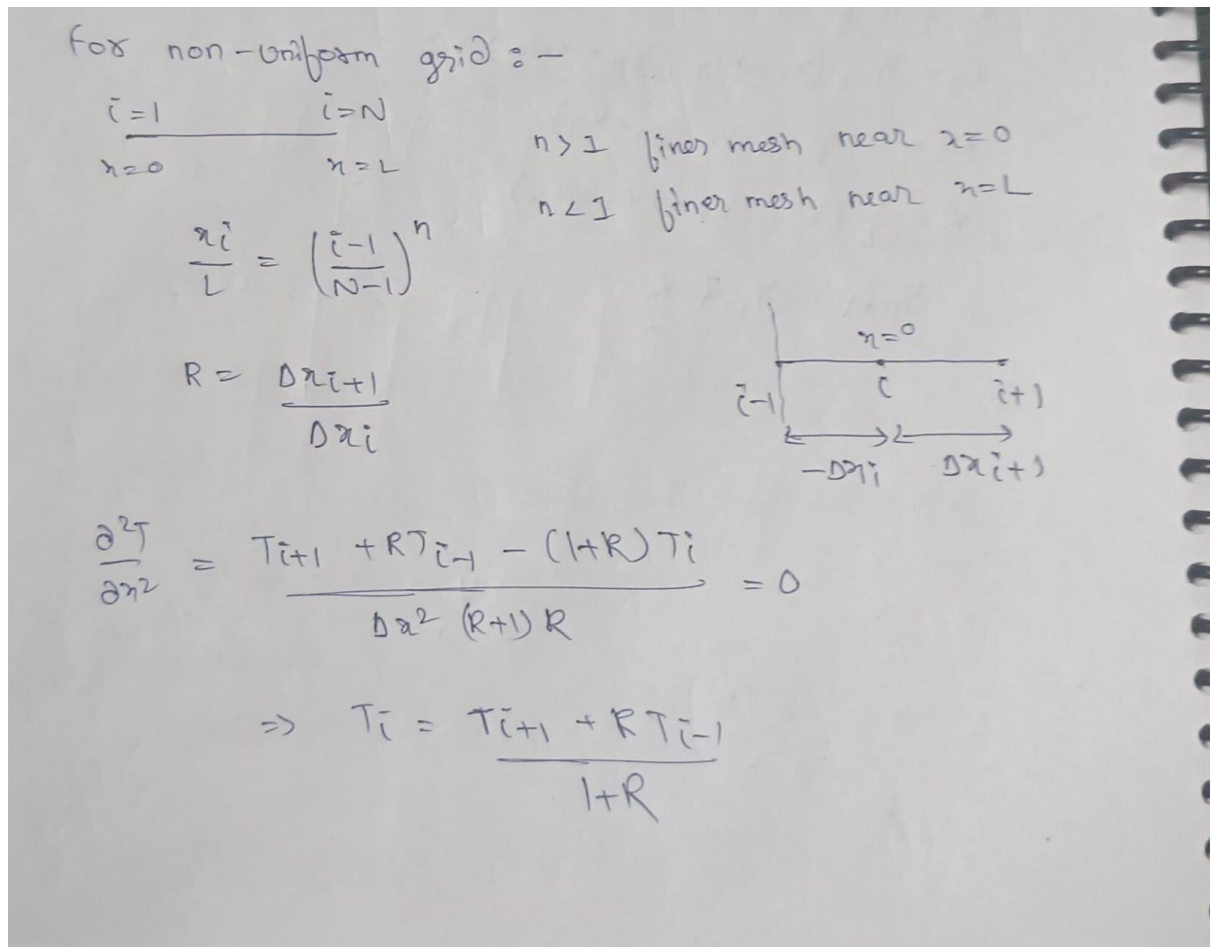 For non-uniform grid :-
i=1 i=N
x=0 x=L
n>1 finer mesh near x=0
n<1 finer mesh near x=L
xi/L = ((i-1)/(N-1))^n
R = Δxi+1/Δxi
x=0
i-1 i i+1
-Δxi Δxi+1
∂²T/∂x² = (Ti+1 + RTi-1 - (1+R)Ti)/(Δx² (R+1)R) = 0
=> Ti = (Ti+1 + RTi-1)/(1+R)